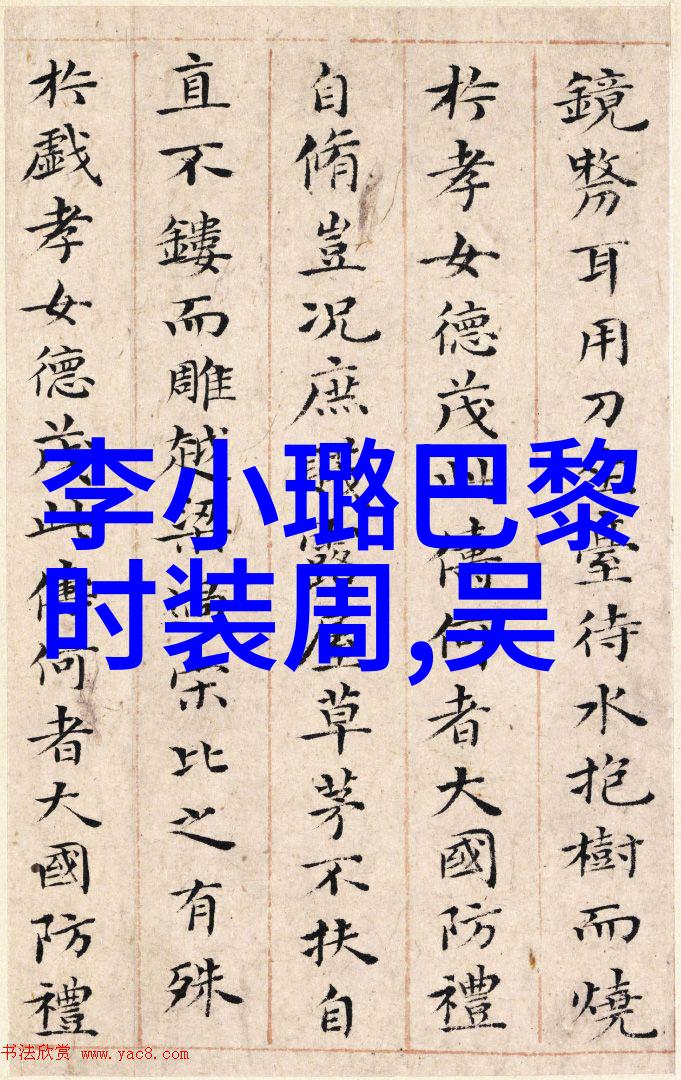 鏡剺耳用刀臺待水抱樹而燒
於孝女德茂此儔何者大國防禮
自脩豈況庶賤露屋草茅不扶自
直不鏤而雕越梁過宋比之有殊
於戲孝女德茂此儔何者大國防禮
李小璐巴黎
时装周,吴
书法欣赏 www.yac8.com